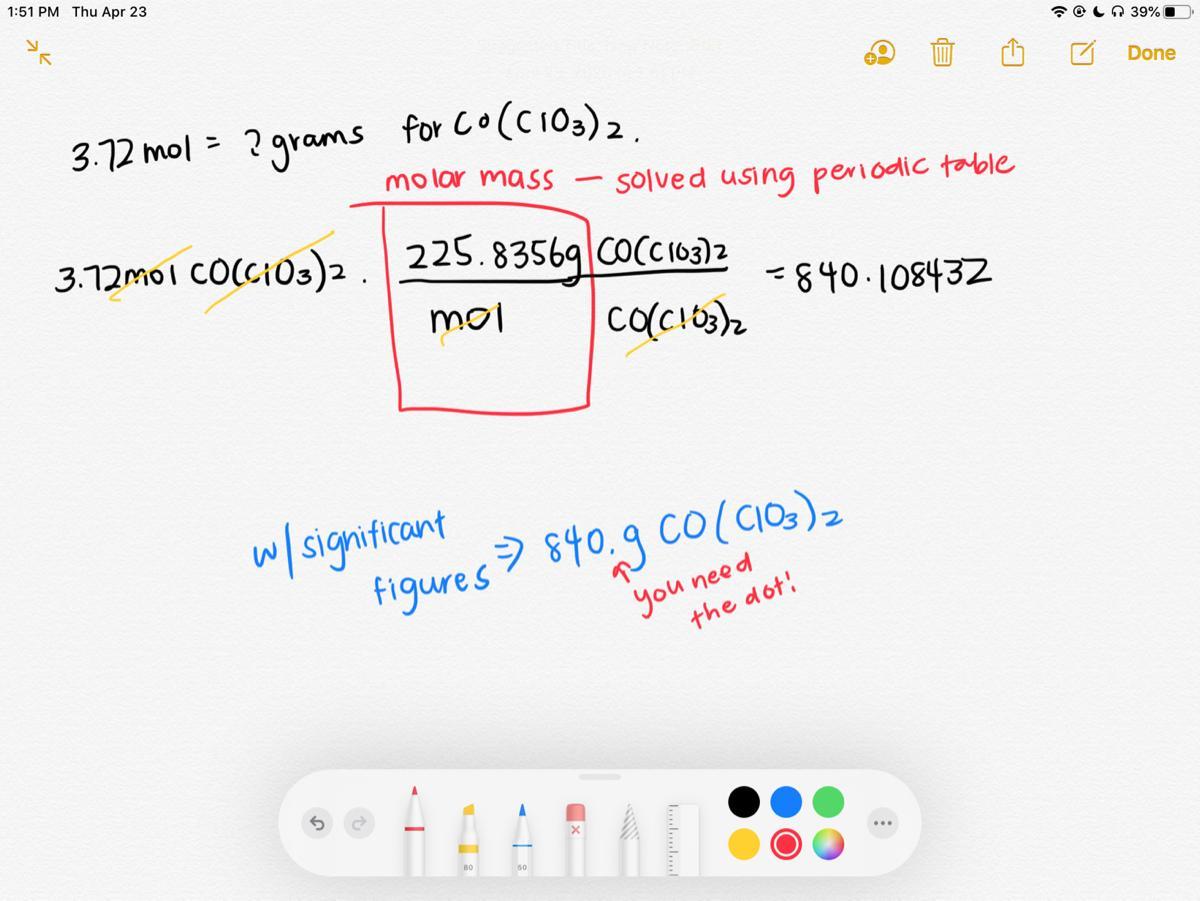 1:51 PM Thu Apr 23
39%
Done
3.72 mol = ? grams for Co(ClO3)2.
molar mass — solved using periodic table
3.72 mol CO(ClO3)2 . 225.8356g CO(ClO3)2 = 840.108432
mol CO(ClO3)2
w/ significant
figures => 840.g CO(ClO3)2
you need
the dot!
80
50